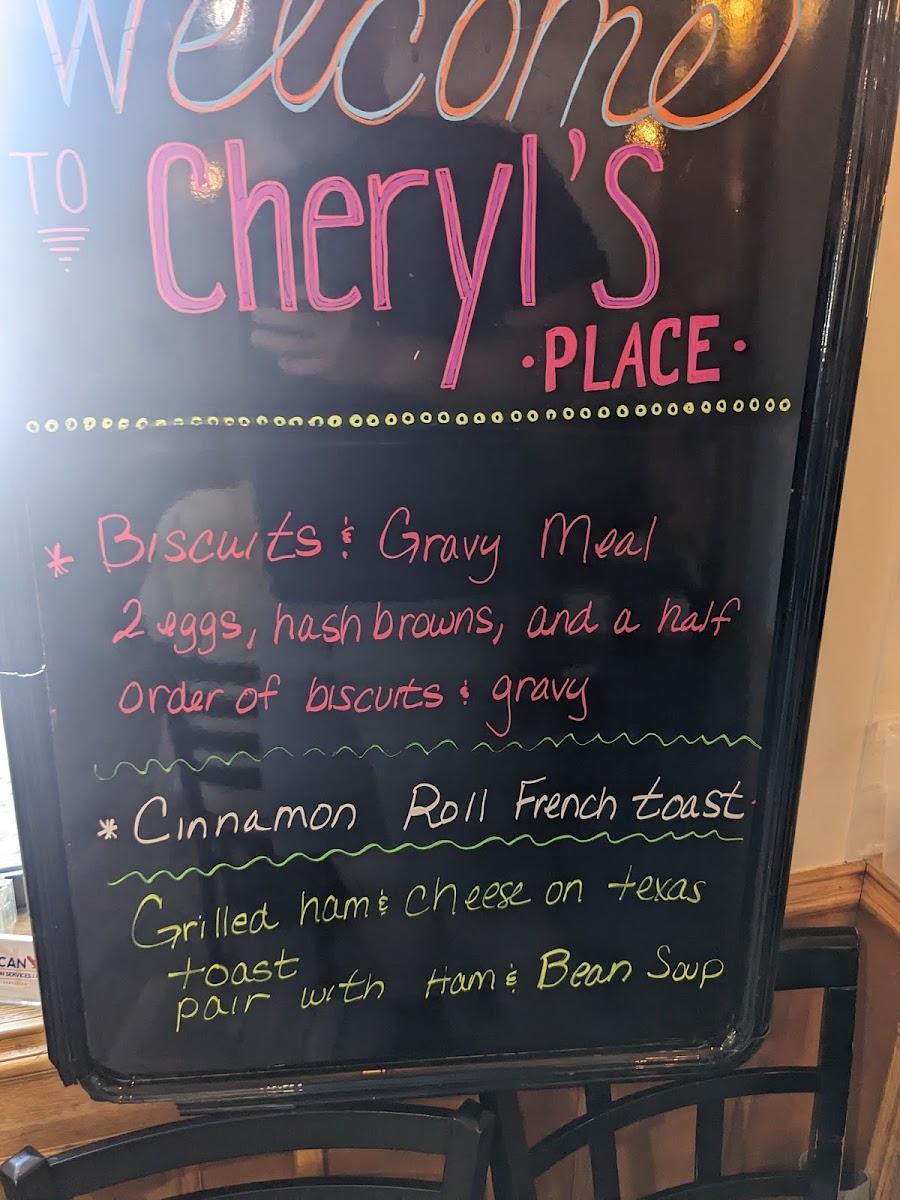 Welcome
TO Cheryl's
·PLACE·
* Biscuits & Gravy Meal
2 eggs, hashbrowns, and a half
order of biscuits & gravy
* Cinnamon Roll French toast
Grilled ham & cheese on texas
toast
pair with Ham & Bean Soup
CAN